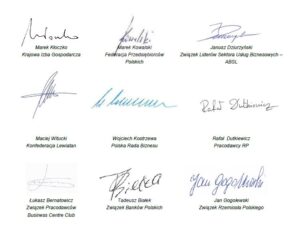 Marek Kłoczko
Krajowa Izba Gospodarcza
Marek Kowalski
Federacja Przedsiębiorców
Polskich
Janusz Dziurzyński
Związek Liderów Sektora Usług Biznesowych –
ABSL
Maciej Witucki
Konfederacja Lewiatan
Wojciech Kostrzewa
Polska Rada Biznesu
Rafał Dutkiewicz
Rafał Dutkiewicz
Pracodawcy RP
Łukasz Bernatowicz
Związek Pracodawców
Business Centre Club
Tadeusz Białek
Związek Banków Polskich
Jan Gogolewski
Jan Gogolewski
Związek Rzemiosła Polskiego